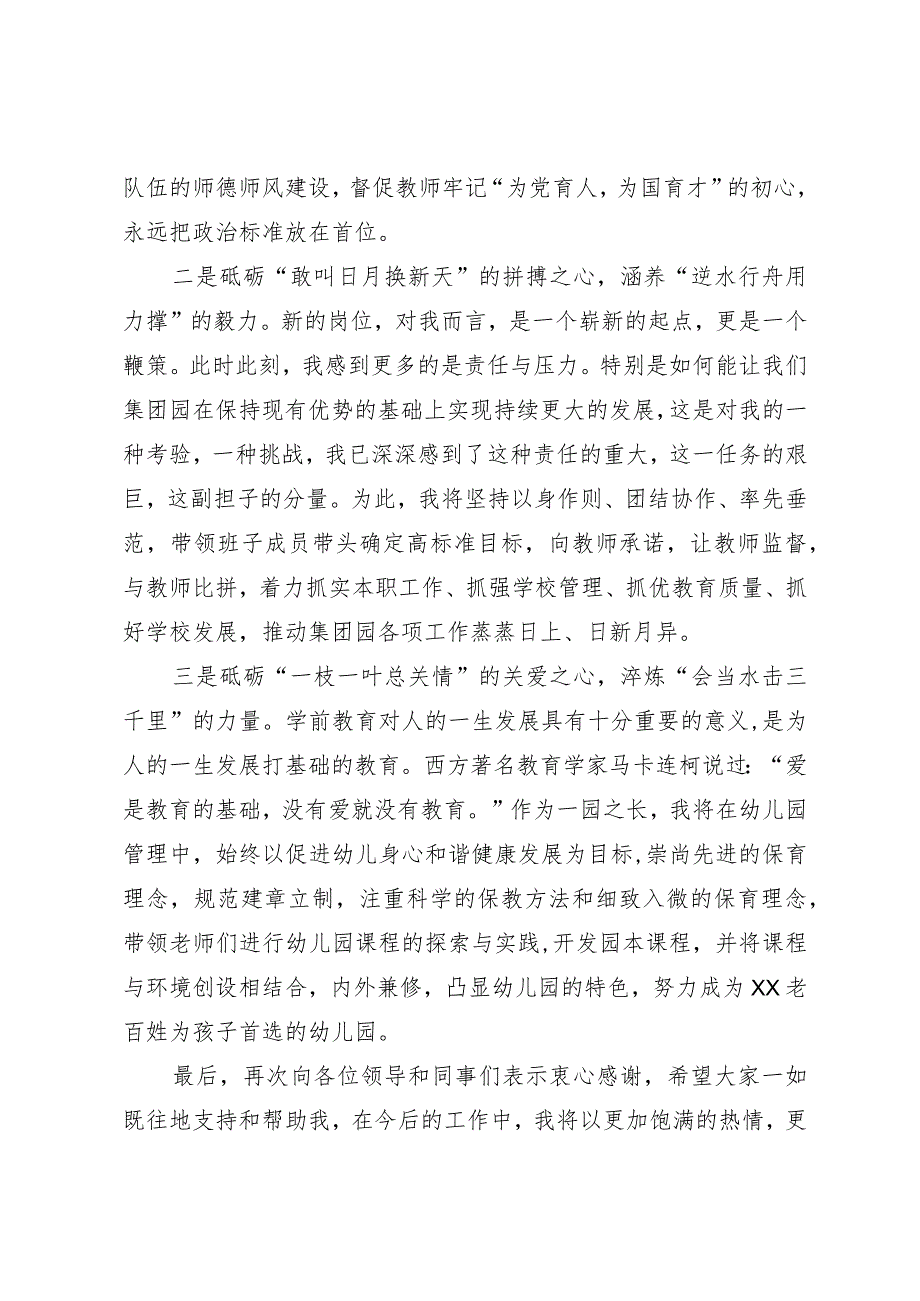 队伍的师德师风建设，督促教师牢记“为党育人，为国育才”的初心，
永远把政治标准放在首位。
二是砥砺“敢叫日月换新天”的拼搏之心，涵养“逆水行舟用
力撑”的毅力。新的岗位，对我而言，是一个崭新的起点，更是一个
鞭策。此时此刻，我感到更多的是责任与压力。特别是如何能让我们
集团园在保持现有优势的基础上实现持续更大的发展，这是对我的一
种考验，一种挑战，我已深深感到了这种责任的重大，这一任务的艰
巨，这副担子的分量。为此，我将坚持以身作则、团结协作、率先垂
范，带领班子成员带头确定高标准目标，向教师承诺，让教师监督，
与教师比拼，着力抓实本职工作、抓强学校管理、抓优教育质量、抓
好学校发展，推动集团园各项工作蒸蒸日上、日新月异。
三是砥砺“一枝一叶总关情”的关爱之心，淬炼“会当水击三
千里”的力量。学前教育对人的一生发展具有十分重要的意义,是为
人的一生发展打基础的教育。西方著名教育学家马卡连柯说过：“爱
是教育的基础，没有爱就没有教育。”作为一园之长，我将在幼儿园
管理中，始终以促进幼儿身心和谐健康发展为目标,崇尚先进的保育
理念，规范建章立制，注重科学的保教方法和细致入微的保育理念，
带领老师们进行幼儿园课程的探索与实践,开发园本课程，并将课程
与环境创设相结合，内外兼修，凸显幼儿园的特色，努力成为 XX 老
百姓为孩子首选的幼儿园。
最后，再次向各位领导和同事们表示衷心感谢，希望大家一如
既往地支持和帮助我，在今后的工作中，我将以更加饱满的热情，更